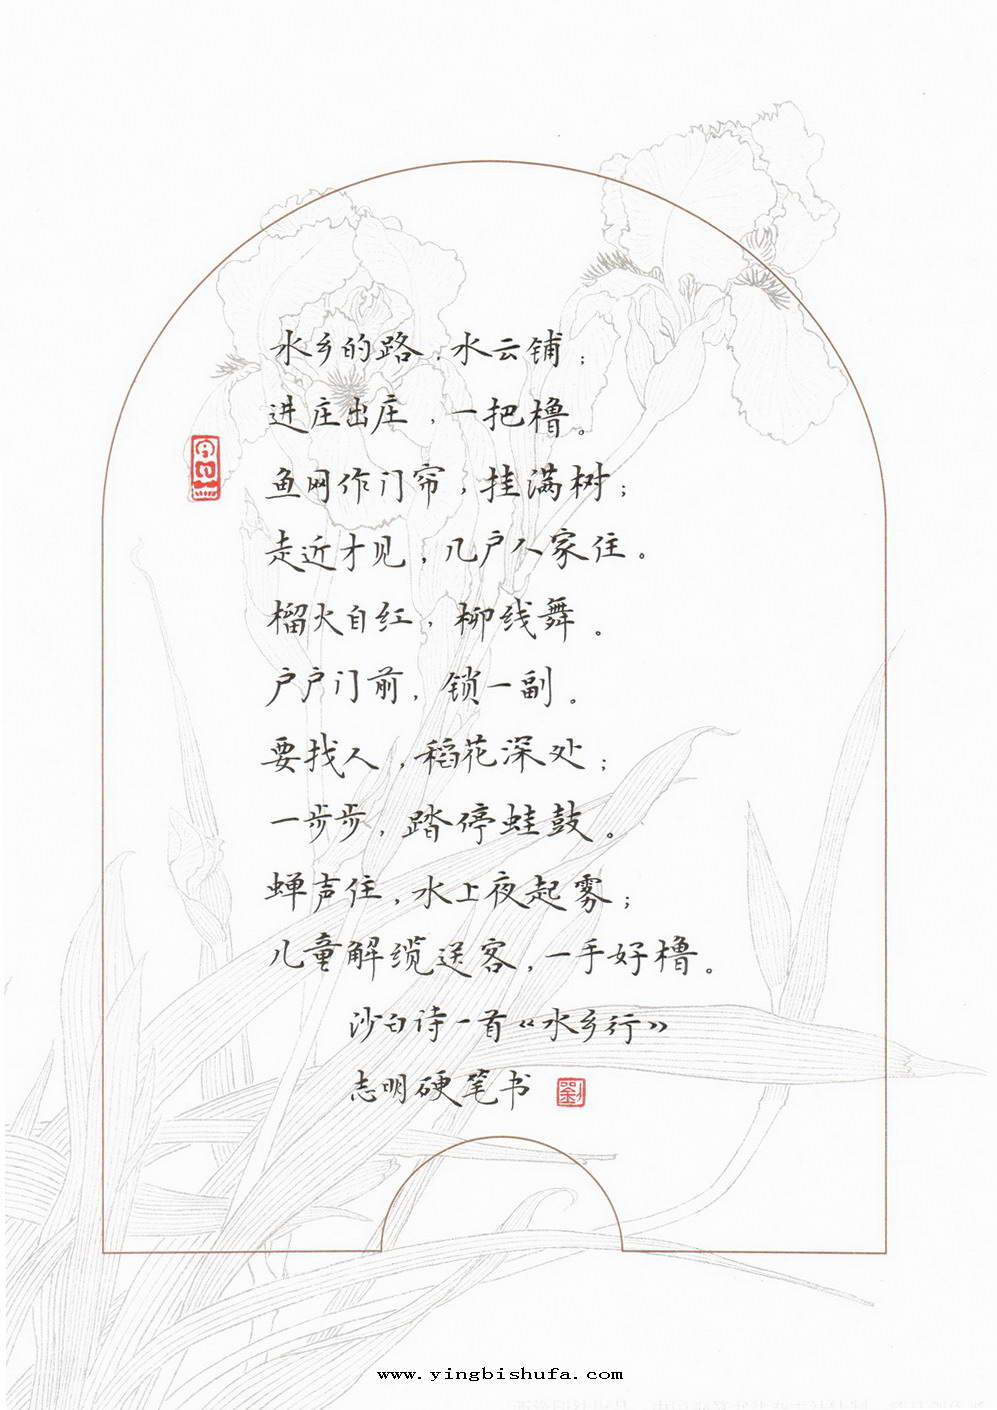 水乡的路，水云铺；
进庄出庄，一把橹。
鱼网作门帘，挂满树；
走近才见，几户人家住。
榴火自红，柳线舞。
户户门前，锁一副。
要找人，稻花深处；
一步步，踏停蛙鼓。
蝉声住，水上夜起雾；
儿童解缆送客，一手好橹。
沙白诗一首《水乡行》
志明硬笔书
劉
www.yingbishufa.com